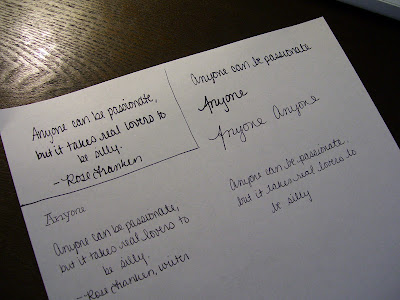 Anyone can be passionate,
but it takes real lovers to
be silly.
~Rose Franken
Anyone can be passionate
Anyone
Anyone Anyone
Anyone
Anyone can be passionate,
but it takes real lovers to
be silly.
~Rose Franken, writer
Anyone can be passionate.
but it takes real lovers to
be silly